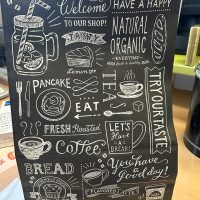 Welcome
TO OUR SHOP!
HAVE A HAPPY
TASTY
NATURAL
ORGANIC
EVERYTIME
Lemon pie
PANCAKE
TEA
TRY OUR TASTE
EAT
FRESH Roasted
Coffee
LET'S
HAVE A
BREAK!
BREAD
You have
a good day!
FLAVORED COFFEE